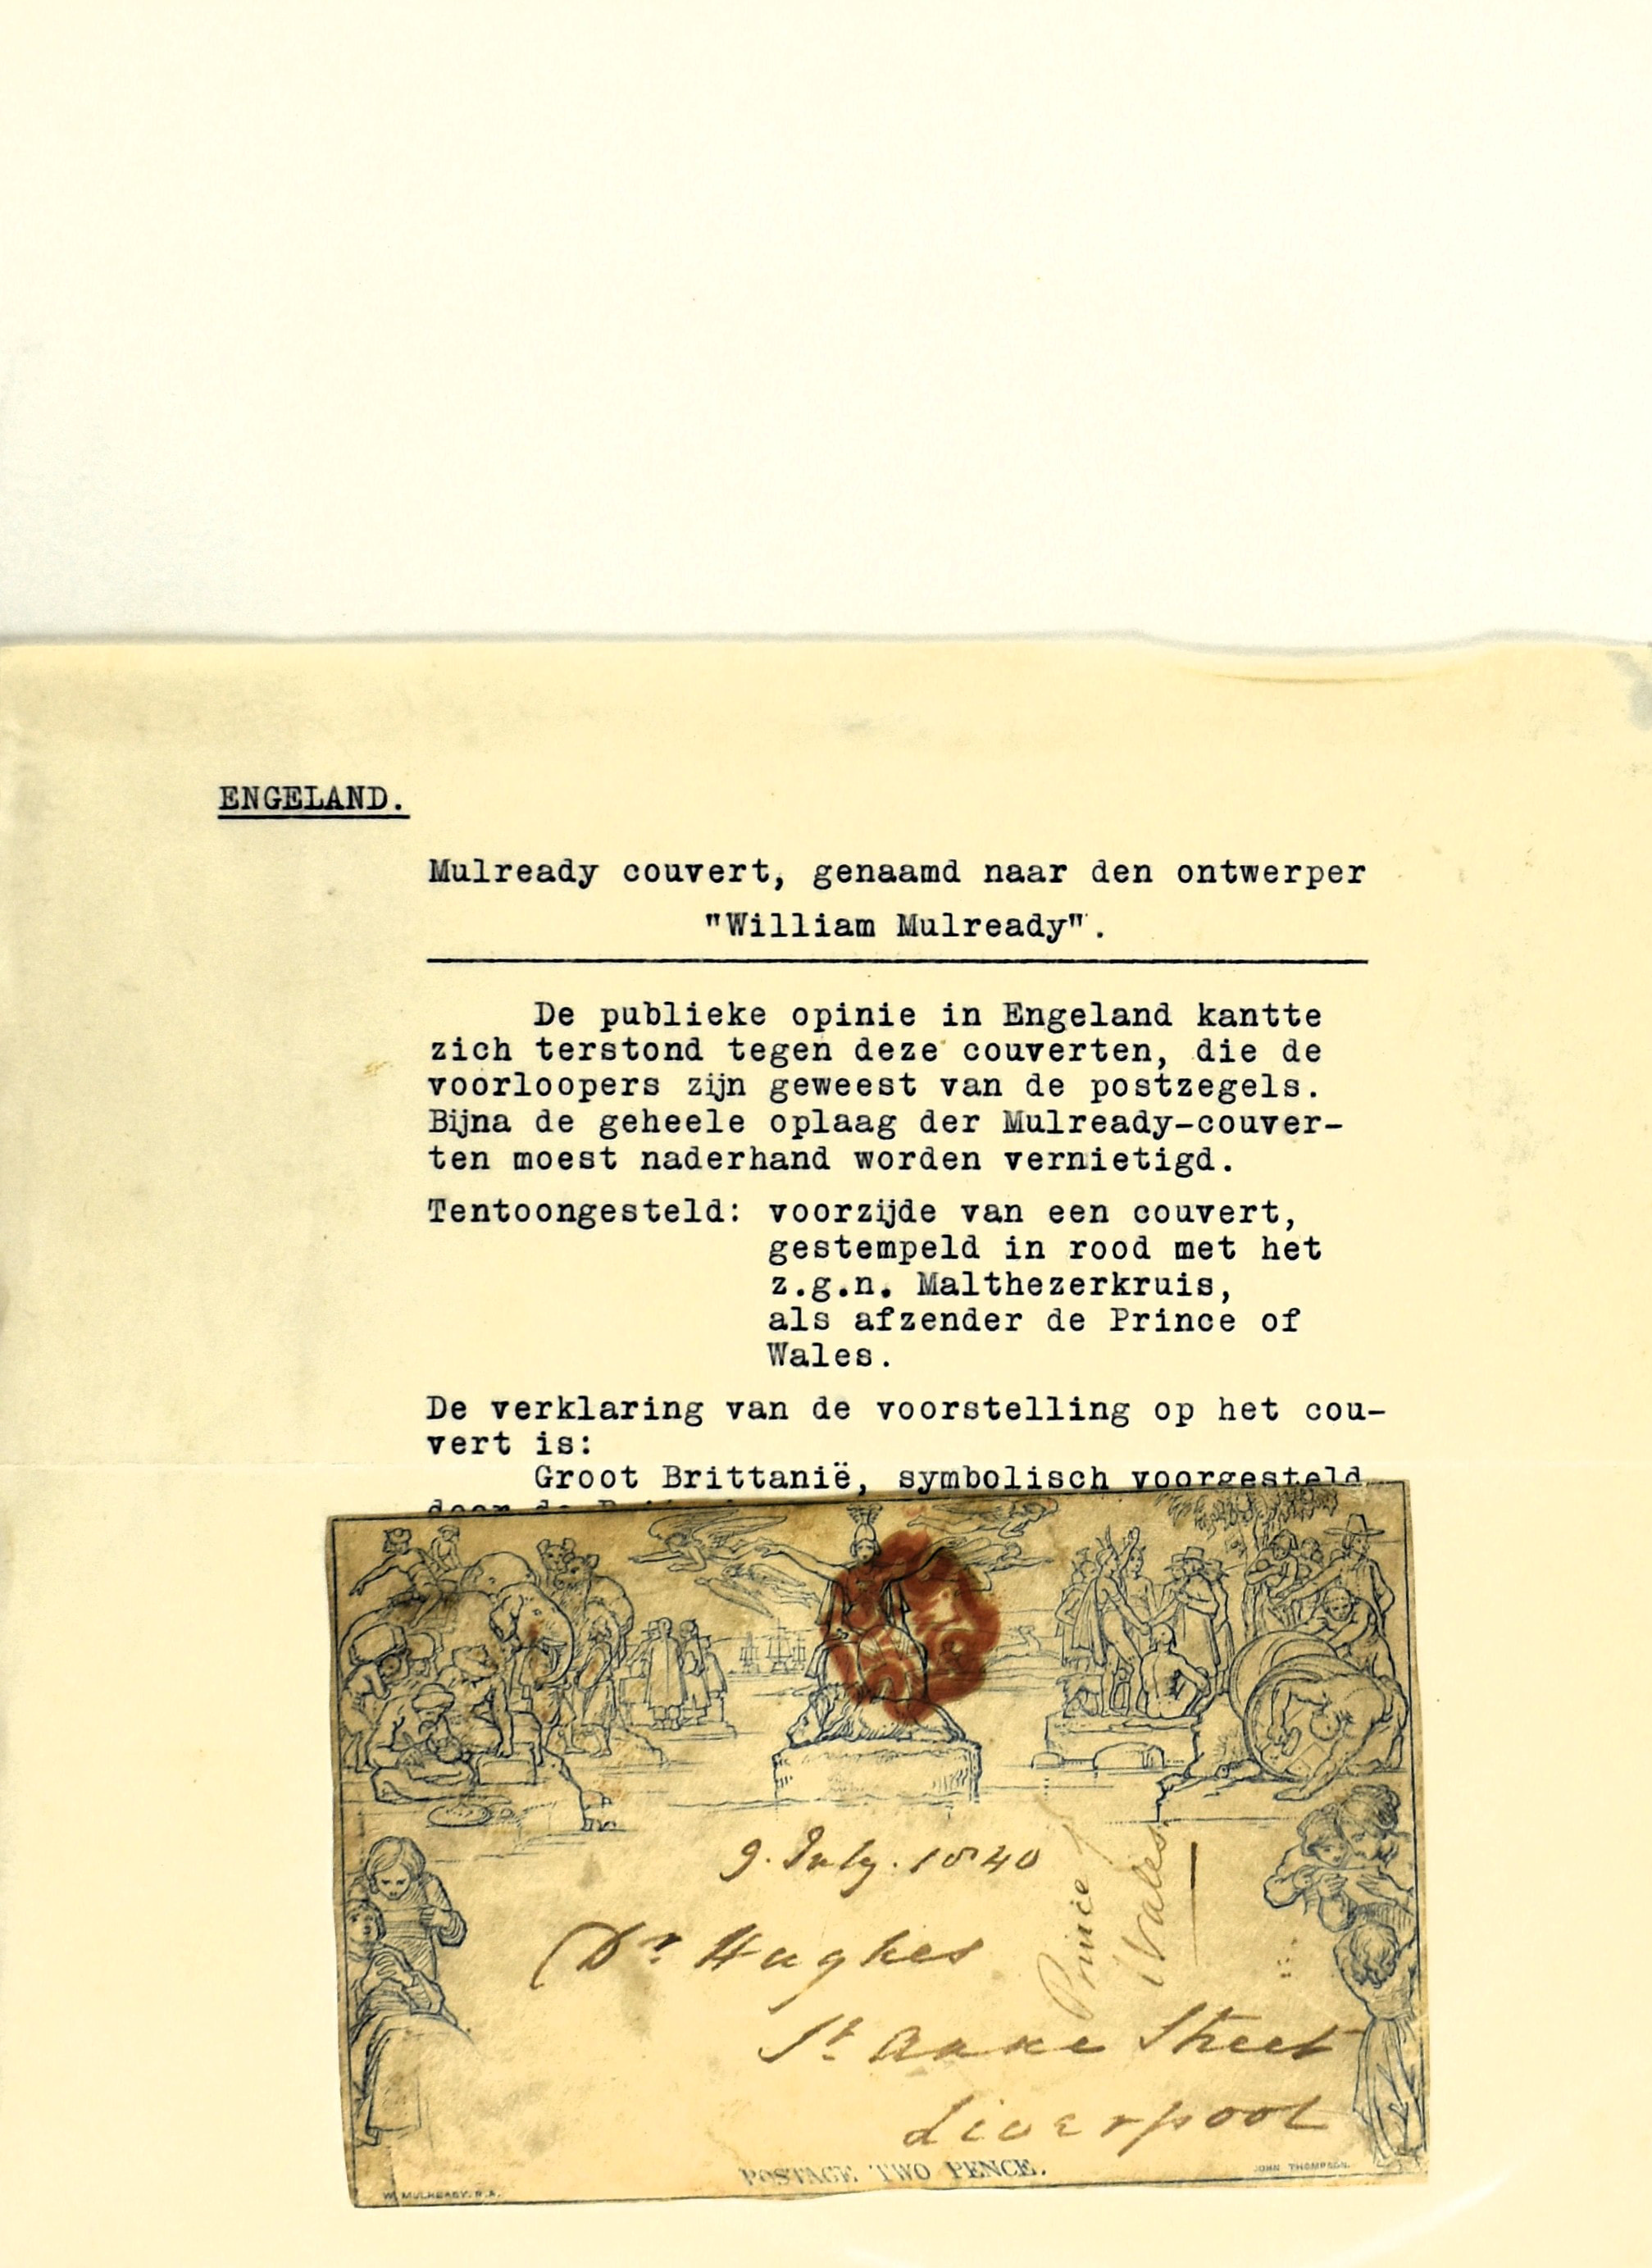 ENGELAND.
Mulready couvert, genaamd naar den ontwerper
"William Mulready".
De publieke opinie in Engeland kantte
zich terstond tegen deze couverten, die de
voorloopers zijn geweest van de postzegels.
Bijna de geheele oplaag der Mulready-couver-
ten moest naderhand worden vernietigd.
Tentoongesteld: voorzijde van een couvert,
gestempeld in rood met het
z.g.n. Malthezerkruis,
als afzender de Prince of
Wales.
De verklaring van de voorstelling op het cou-
vert is:
Groot Brittanië, symbolisch voorgesteld
door de
9. July. 1840
Prince
Wales
Dr. Hughes
St. Anne Street
Liverpool
POSTAGE TWO PENCE.
W. MULREADY. R.A.
JOHN THOMPSON.